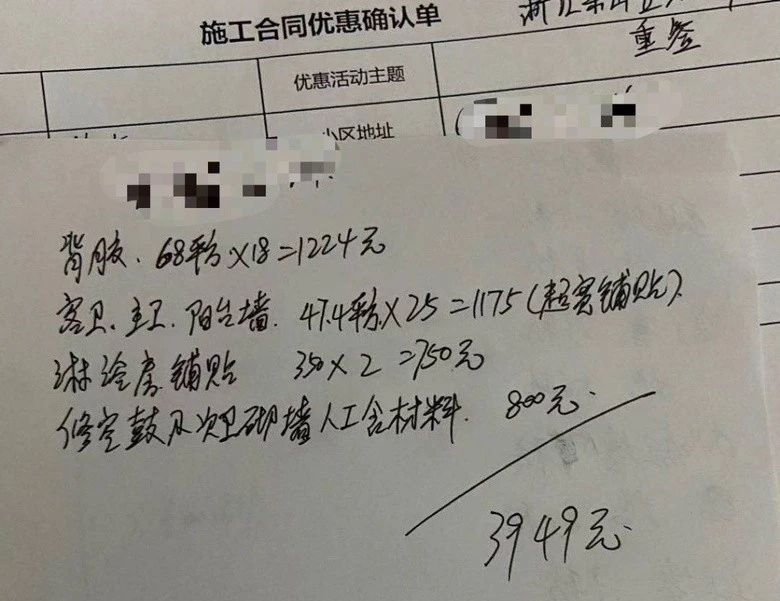 施工合同优惠确认单
重签
优惠活动主题
小区地址
背胶. 68平方×18=1224元
客卫.主卫.阳台墙. 47.4平方×25=1175(超宽铺贴).
淋浴房铺贴 350×2=750元
修空鼓及次卫砌墙人工含材料. 800元.
3949元.